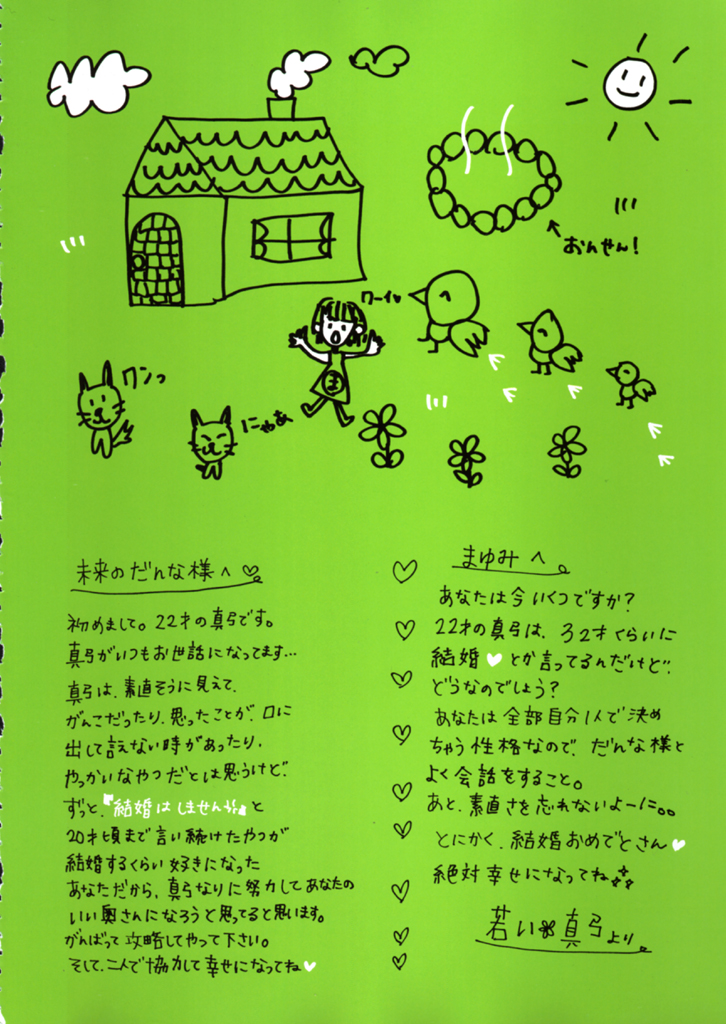 おんせん!
ワーイ♥
ま
ワンっ
にゃあ
未来のだんな様へ♡
初めまして。22才の真弓です。
真弓がいつもお世話になってます…
真弓は、素直そうに見えて、
がんこだったり、思ったことが、口に
出して言えない時があったり、
やっかいなやつだとは思うけど、
ずっと、『結婚はしません』と
20才頃まで言い続けたやつが
結婚するくらい好きになった
あなただから、真弓なりに努力してあなたの
いい奥さんになろうと思ってると思います。
がんばって攻略してやって下さい。
そして、二人で協力して幸せになってね♥
まゆみへ
あなたは今いくつですか?
22才の真弓は、32才くらいに
結婚♥とか言ってるんだけど、
どうなのでしょう?
あなたは全部自分1人で決め
ちゃう性格なので、だんな様と
よく会話をすること。
あと、素直さを忘れないよーに。。
とにかく、結婚おめでとさん♥
絶対幸せになってね
若い真弓より。